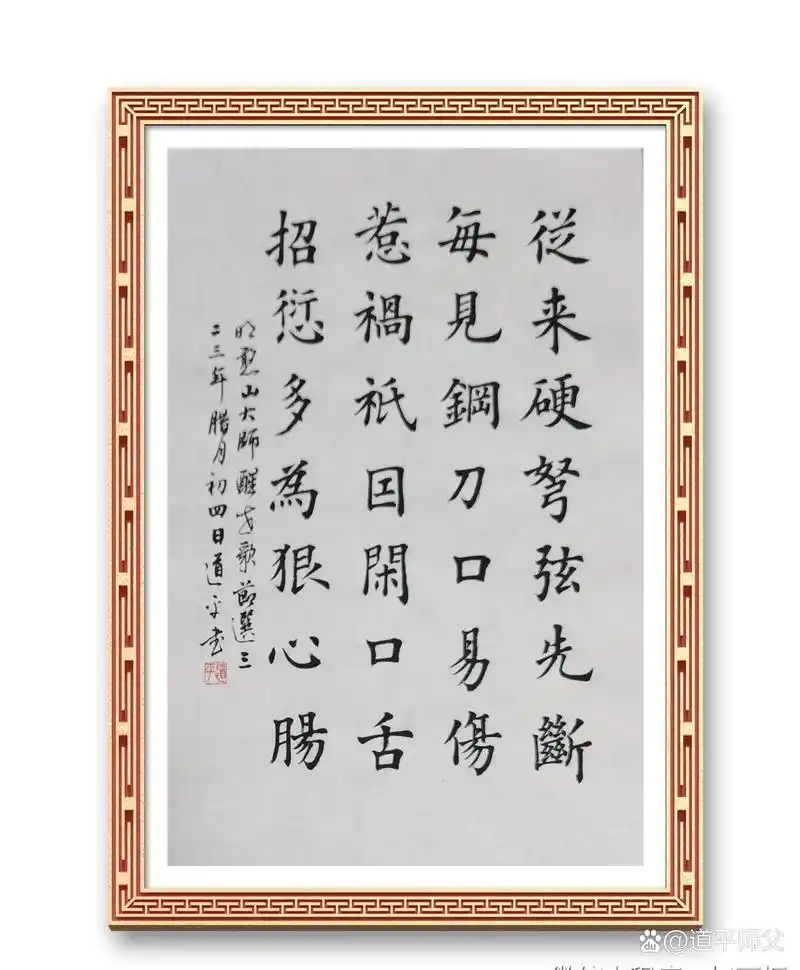 従来硬弩弦先斷
每見鋼刀口易傷
惹禍祇因閑口舌
招愆多為狠心腸
明憨山大師醒世歌節選三
二三年腊月初四日道平书
道平
@道平师父